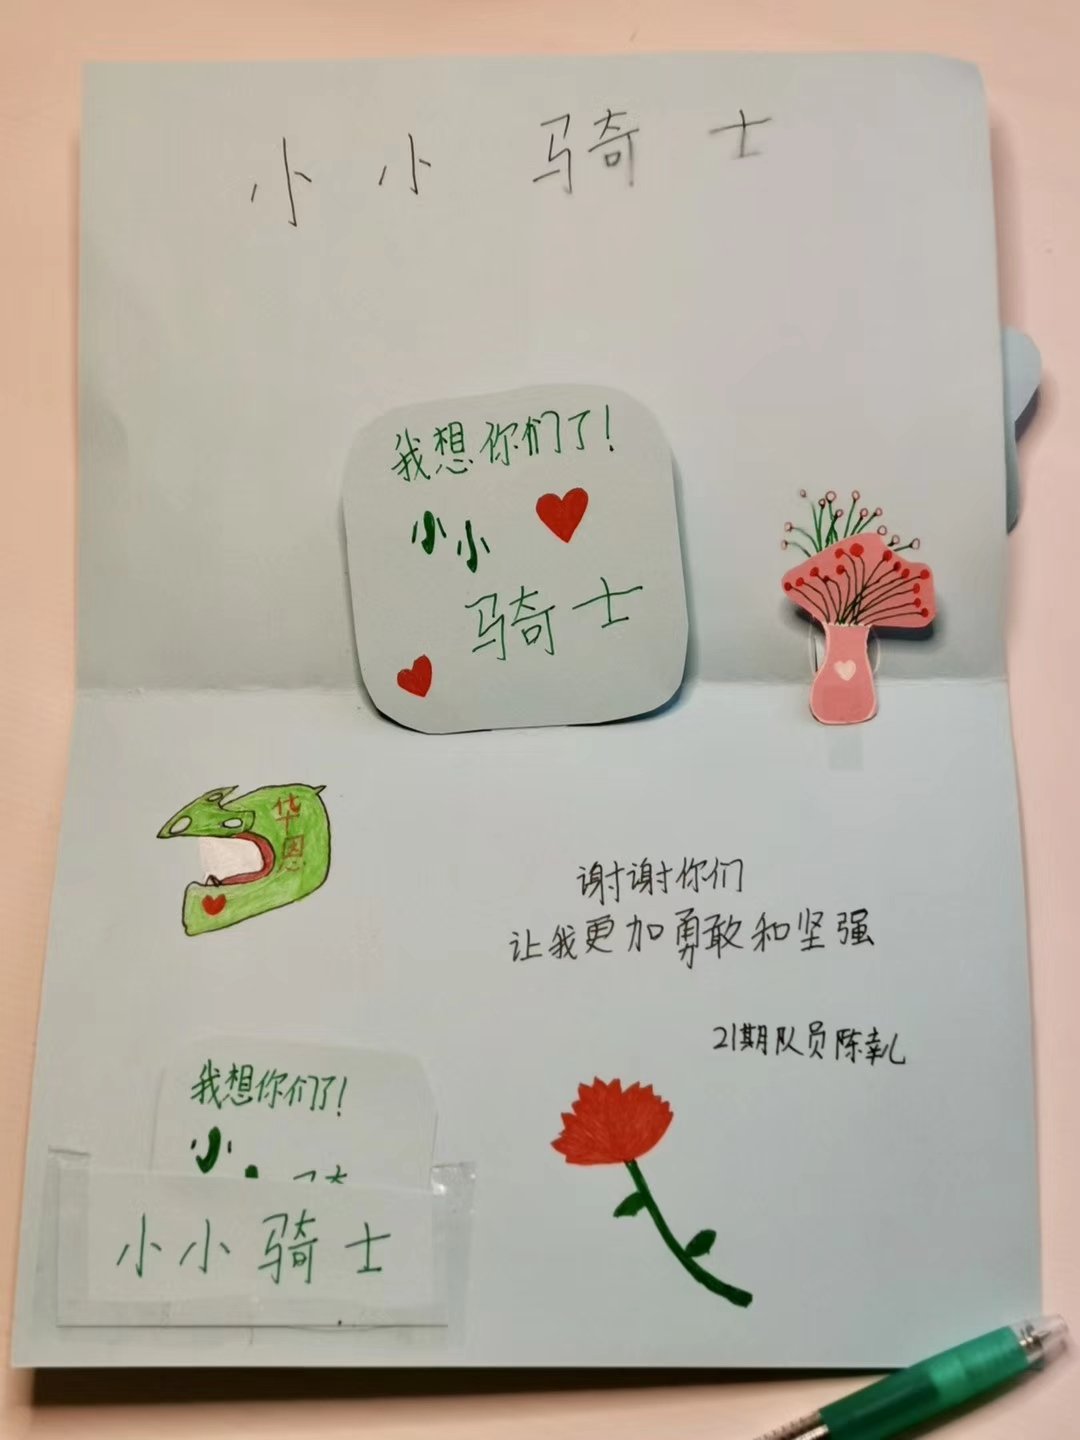 小小骑士
我想你们了！
小小
骑士
谢谢你们
让我更加勇敢和坚强
21期队员陈幸儿
我想你们了！
小
小小骑士